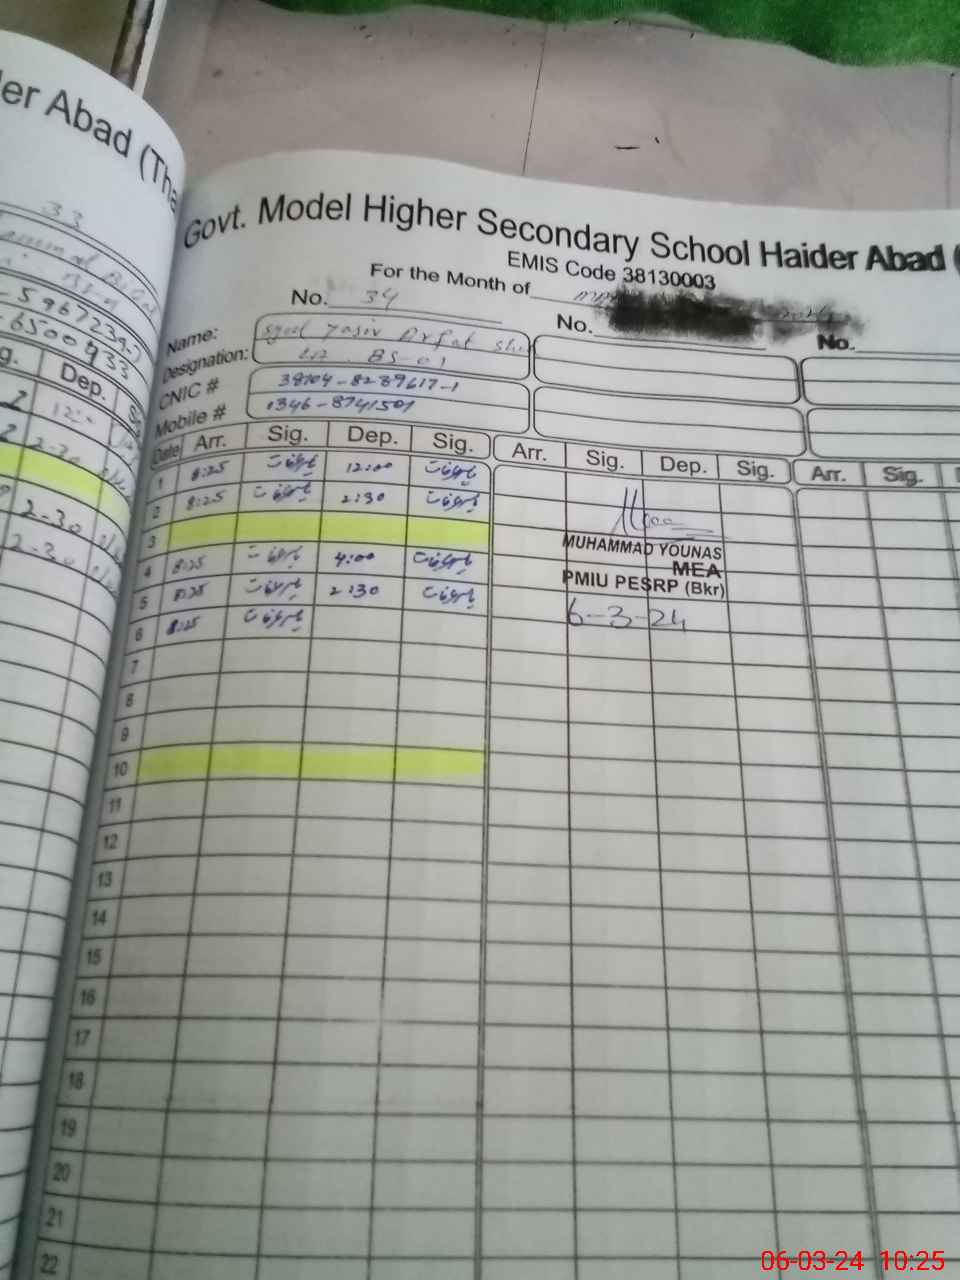 er Abad (Tha
33
-6500933
g. Dep. S
12:00
2-30
2-30
2-30
Govt. Model Higher Secondary School Haider Abad (
EMIS Code 38130003
For the Month of
No. 34 No. No.
Name: Syed Yasir Arfat
Designation: BS-01
CNIC # 38104-8289617-1
Mobile # 0346-8741501
Date Arr. Sig. Dep. Sig. Arr. Sig. Dep. Sig. Arr. Sig.
1 8:25 یاسر عرفات 12:00 یاسر عرفات
2 8:25 یاسر عرفات 2:30 یاسر عرفات
3
4 8:25 یاسر عرفات 4:00 یاسر عرفات
5 8:25 یاسر عرفات 2:30 یاسر عرفات
6 8:25 یاسر عرفات
MUHAMMAD YOUNAS
MEA
PMIU PESRP (Bkr)
6-3-24
7
8
9
10
11
12
13
14
15
16
17
18
19
20
21
22
06-03-24 10:25